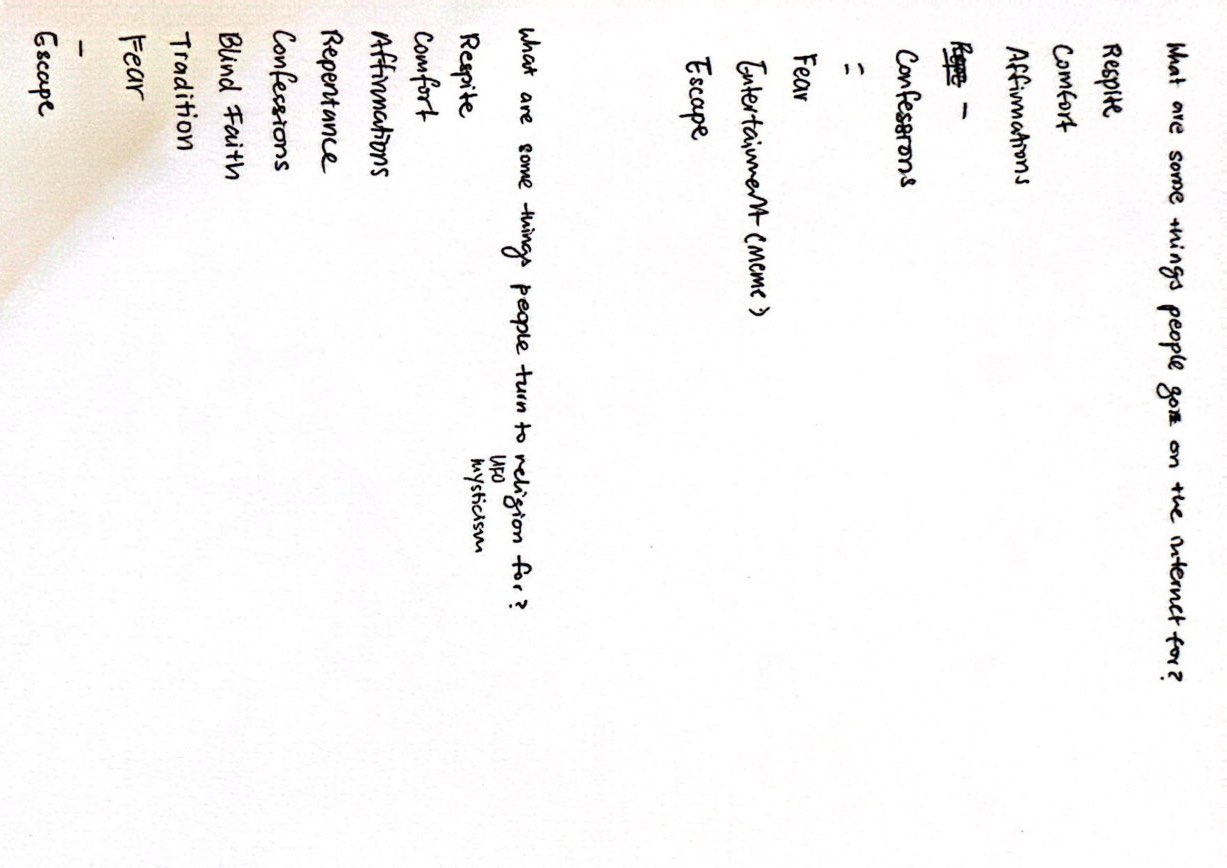 What are some things people go on the internet for?
Respite
Comfort
Affirmations
Repe –
Confessions
–
–
Fear
Entertainment (meme)
Escape
What are some things people turn to religion for?
UFO
mysticism
Respite
Comfort
Affirmations
Repentance
Confessions
Blind Faith
Tradition
Fear
–
Escape